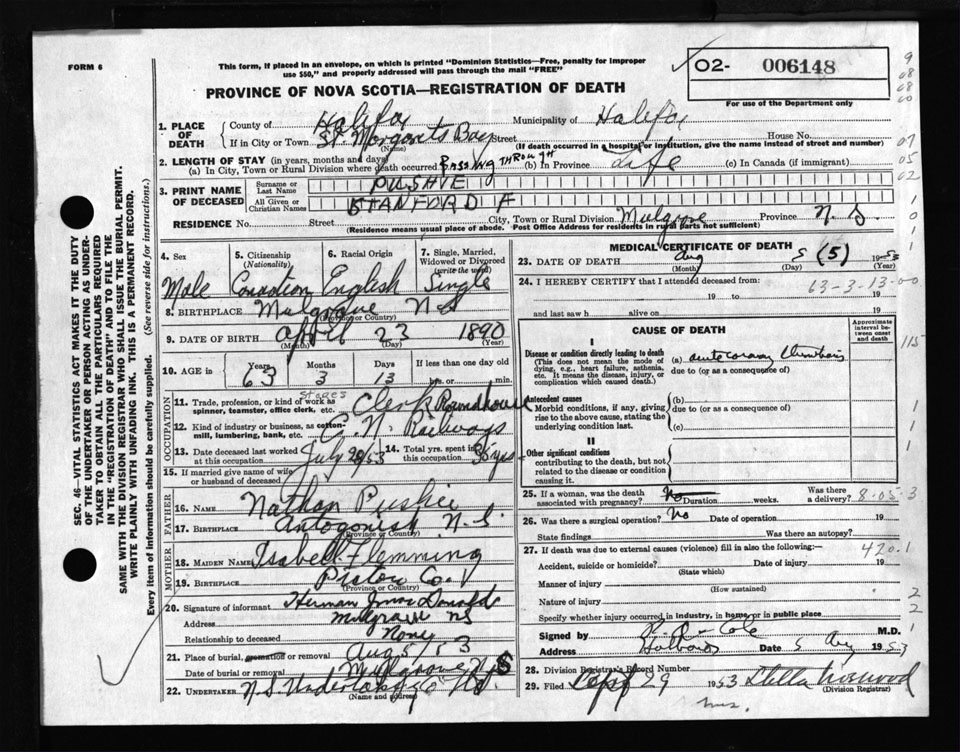 FORM 6
This form, if placed in an envelope, on which is printed "Dominion Statistics—Free, penalty for improper
use $50," and properly addressed will pass through the mail "FREE"
PROVINCE OF NOVA SCOTIA—REGISTRATION OF DEATH
02- 006148
For use of the Department only
1. PLACE OF DEATH County of Halifax Municipality of Halifax
If in City or Town St. Margarets Bay Street House No.
(Name) (If death occurred in a hospital or institution, give the name instead of street and number)
2. LENGTH OF STAY (in years, months and days)
(a) In City, Town or Rural Division where death occurred PASSING THROUGH (b) In Province Life (c) In Canada (if immigrant)
3. PRINT NAME OF DECEASED Surname or Last Name PUSHIE
All Given or Christian Names STANFORD F
RESIDENCE No. Street City, Town or Rural Division Mulgrave Province N.S.
(Residence means usual place of abode. Post Office Address for residents in rural parts not sufficient)
4. Sex Male
5. Citizenship (Nationality) Canadian
6. Racial Origin English
7. Single, Married, Widowed or Divorced (write the word) Single
8. BIRTHPLACE Mulgrave N.S
(Province or Country)
9. DATE OF BIRTH April 23 1890
(Month) (Day) (Year)
10. AGE in Years 63 Months 3 Days 13 If less than one day old hrs. or min.
OCCUPATION
11. Trade, profession, or kind of work as spinner, teamster, office clerk, etc. Stores Clerk Roundhouse
12. Kind of industry or business, as cotton-mill, lumbering, bank, etc. C.N. Railways
13. Date deceased last worked at this occupation July 1953 14. Total yrs. spent in this occupation yrs
15. If married give name of wife or husband of deceased
FATHER
16. NAME Nathan Pushie
17. BIRTHPLACE Antogonish N.S.
(Province or Country)
MOTHER
18. MAIDEN NAME Isabell Flemming
19. BIRTHPLACE Pictou Co.
(Province or Country)
20. Signature of informant Herman Donald
Address Mulgrave NS
Relationship to deceased None
21. Place of burial, cremation or removal Aug 5/53
Date of burial or removal Mulgrave N.S
22. UNDERTAKER N.S. Undertaking Co
(Name and address)
MEDICAL CERTIFICATE OF DEATH
23. DATE OF DEATH Aug 5 (5) 1953
(Month) (Day) (Year)
24. I HEREBY CERTIFY that I attended deceased from 63-3-13-00
19 to 19
and last saw h alive on 19
CAUSE OF DEATH
Approximate interval between onset and death
I
Disease or condition directly leading to death
(This does not mean the mode of dying, e.g., heart failure, asthenia, etc. It means the disease, injury, or complication which caused death.)
(a)
due to (or as a consequence of)
Antecedent causes
Morbid conditions, if any, giving rise to the above cause, stating the underlying condition last.
(b)
due to (or as a consequence of)
(c)
II
Other significant conditions
contributing to the death, but not related to the disease or condition causing it.
25. If a woman, was the death associated with pregnancy? No Duration weeks. Was there a delivery? 8-05-3
26. Was there a surgical operation? No Date of operation 19
State findings Was there an autopsy?
27. If death was due to external causes (violence) fill in also the following:— 420.1
Accident, suicide or homicide? Date of injury 19
(State which)
Manner of injury
(How sustained)
Nature of injury
Specify whether injury occurred in industry, in home, or in public place
Signed by Cole M.D.
Address Date 5 Aug 1953
28. Division Registrar's Record Number
29. Filed Sept 29 1953 Stella
(Division Registrar)
mrs.
SEC. 46—VITAL STATISTICS ACT MAKES IT THE DUTY
OF THE UNDERTAKER OR PERSON ACTING AS UNDER-
TAKER TO OBTAIN ALL THE PARTICULARS REQUIRED
IN THE "REGISTRATION OF DEATH" AND TO FILE THE
SAME WITH THE DIVISION REGISTRAR WHO SHALL ISSUE THE BURIAL PERMIT.
WRITE PLAINLY WITH UNFADING INK. THIS IS A PERMANENT RECORD.
Every item of information should be carefully supplied. (See reverse side for instructions.)
9
08
08
00
07
05
02
1
0
1
1
115
1
1
1
2
2
1